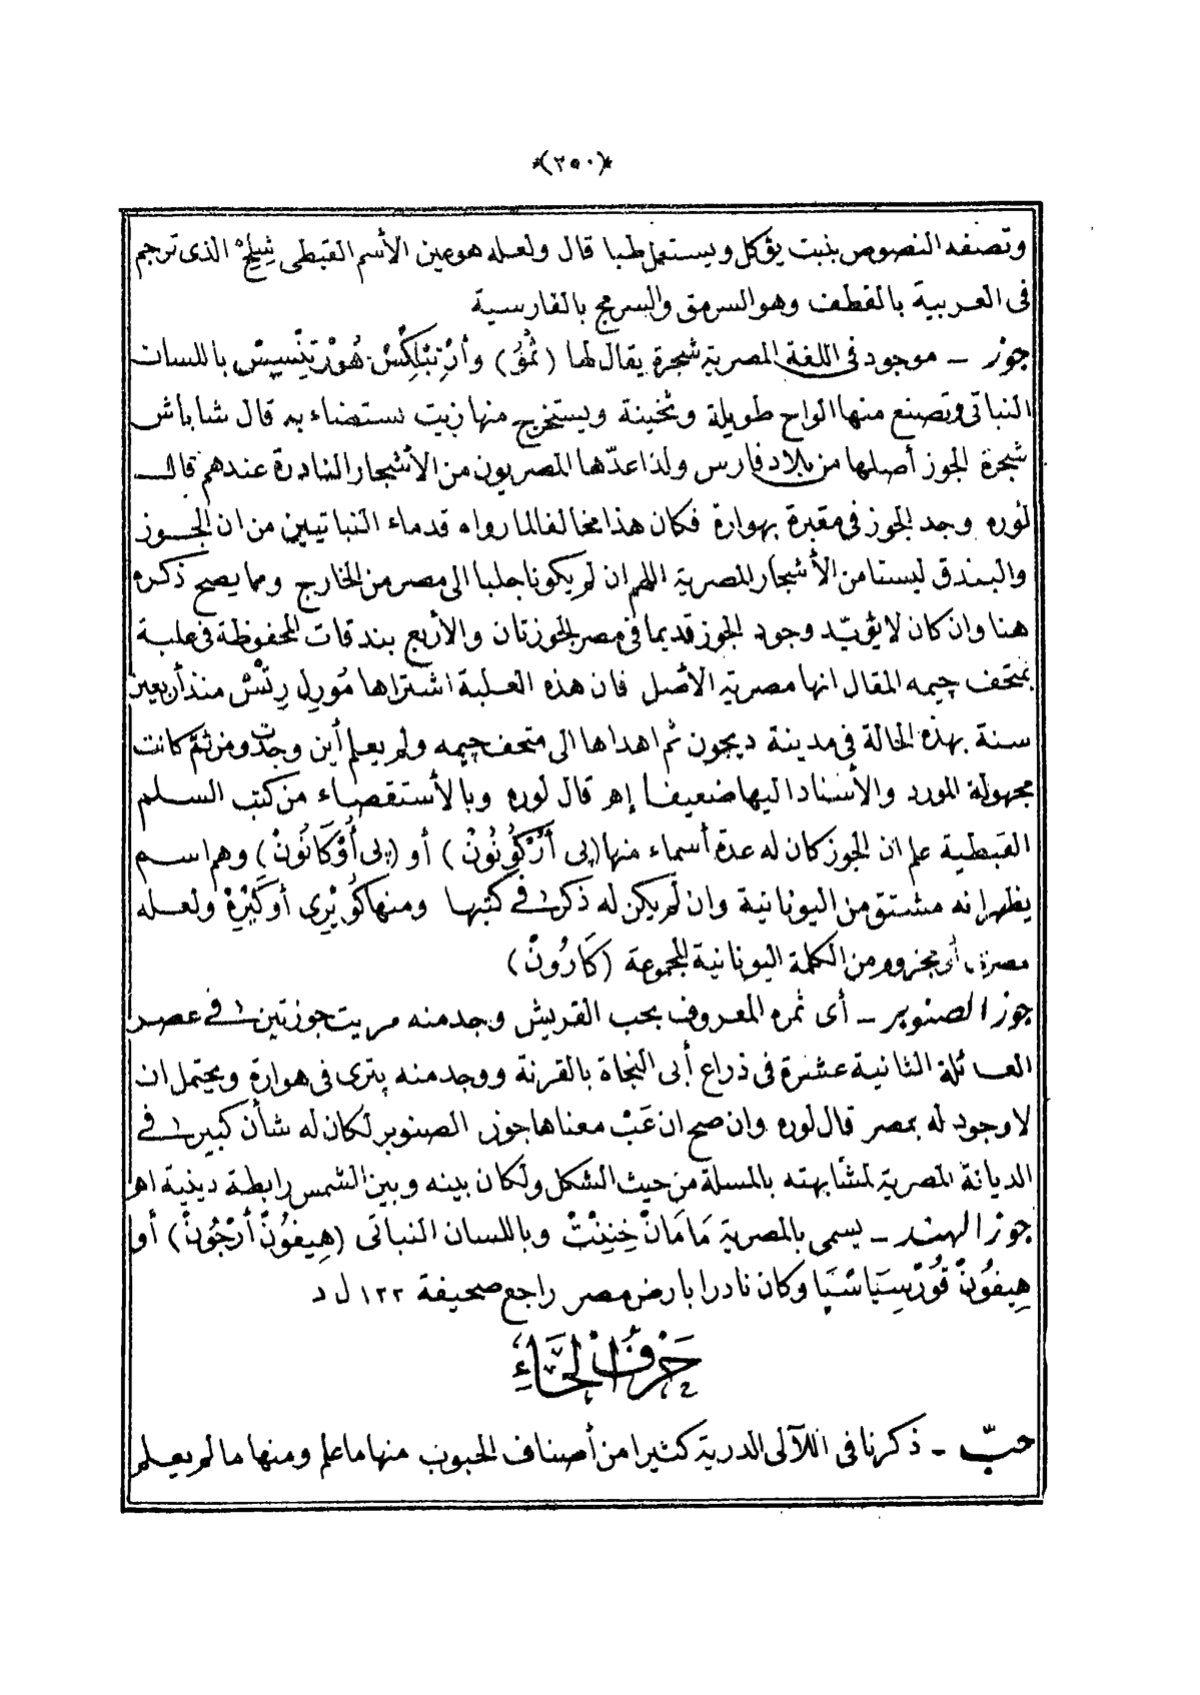 *(٢٥٠)*
وتصفه النصوص بنبت يؤكل ويستعمل طبا قال ولعله هو عين الأسم القبطى الذى ترجم
فى العربية بالقطف وهو السرمق والسرمج بالفارسية
جوز ـ موجود فى اللغة المصرية شجرة يقال لها ( ) هُورْتِنْسِيسْ باللسان
النباتى وتصنع منها الواح طويلة وثخينة ويستخرج منها زيت يستضاء به قال شاباش
شجرة الجوز أصلها من بلاد فارس ولذا عدّها المصريون من الأشجار النادرة عندهم قال
لوره وجد الجوز فى مقبرة بهوارة فكان هذا مخالفا لما رواه قدماء النباتيين من ان الجوز
والبندق ليستا من الأشجار المصرية اللهم ان لم يكونا جلبا الى مصر من الخارج ومما يصح ذكره
هنا وان كان لا يؤيّد وجود الجوز قديما فى مصر الجوزتان والأربع بندقات المحفوظة فى علبة
بمتحف جيمه المقال انها مصرية الأصل فان هذه العلبة اشتراها مُورِل رِتْسْ منذ أربعين
سنة بهذه الحالة فى مدينة ديجون ثم اهداها الى متحف جيمه ولم يعلم أين وجدت ومن ثم كانت
مجهولة المورد والأسناد اليها ضعيفا إهـ قال لوره وبالأستقصاء من كتب السلم
القبطية علم ان الجوز كان له عدة أسماء منها (پى أَرْكُونُونْ) أو (پى أُوْكَانُونْ) وهم اسم
يظهر انه مشتق من اليونانية وان لم يكن له ذكر فى كتبها ومنها كُو يْرى أو كَيْرِهْ ولعله
أو مجزوم من الكلمة اليونانية المجموعة (كَارُونْ)
جوز الصنوبر ـ أى ثمره المعروف بحب القريش وجد منه مريت جوزتين فى عصر
العائلة الثانية عشرة فى ذراع أبى النجاة بالقرنة ووجد منه پترى فى هوارة ويحتمل ان
لا وجود له بمصر قال لوره وان صح ان عَبْ معناها جوز الصنوبر لكان له شأن كبير فى
الديانة المصرية لمشابهته بالمسلة من حيث الشكل ولكان بينه وبين الشمس رابطة دينية اهـ
جوز الهند ـ يسمى بالمصرية مَامَانْ خِنِنْتْ وباللسان النباتى (هِيفُونْ أَرْجُونْ) أو
هِيفُونْ قُورْسِيَاسْيَا وكان نادرا بارض مصر راجع صحيفة ١٢٢ ل د
حَرْفُ الْحَاءِ
حبّ ـ ذكرنا فى اللآلى الدرية كثيرا من أصناف الحبوب منها ما علم ومنها ما لم يعلم